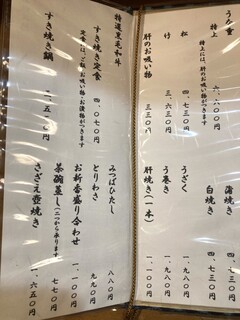 うな重
特上 六、八〇〇円
特上には、肝のお吸い物がつきます
松 四、七三〇円
竹 三、六三〇円
肝のお吸い物 三三〇円
蒲焼き 四、七三〇円
白焼き 四、七三〇円
うざく 一、九八〇円
う巻き 一、九八〇円
肝焼き(一本) 一、一〇〇円
特選黒毛和牛
すき焼き定食 四、〇七〇円
定食には、ご飯とお吸い物、お漬物がつきます
すき焼き鍋
みつばひたし 八八〇円
とりわさ 九九〇円
お新香盛り合わせ 一、一〇〇円
茶碗蒸し(二つから承ります) 七七〇円
さざえ壺焼き 一、六五〇円